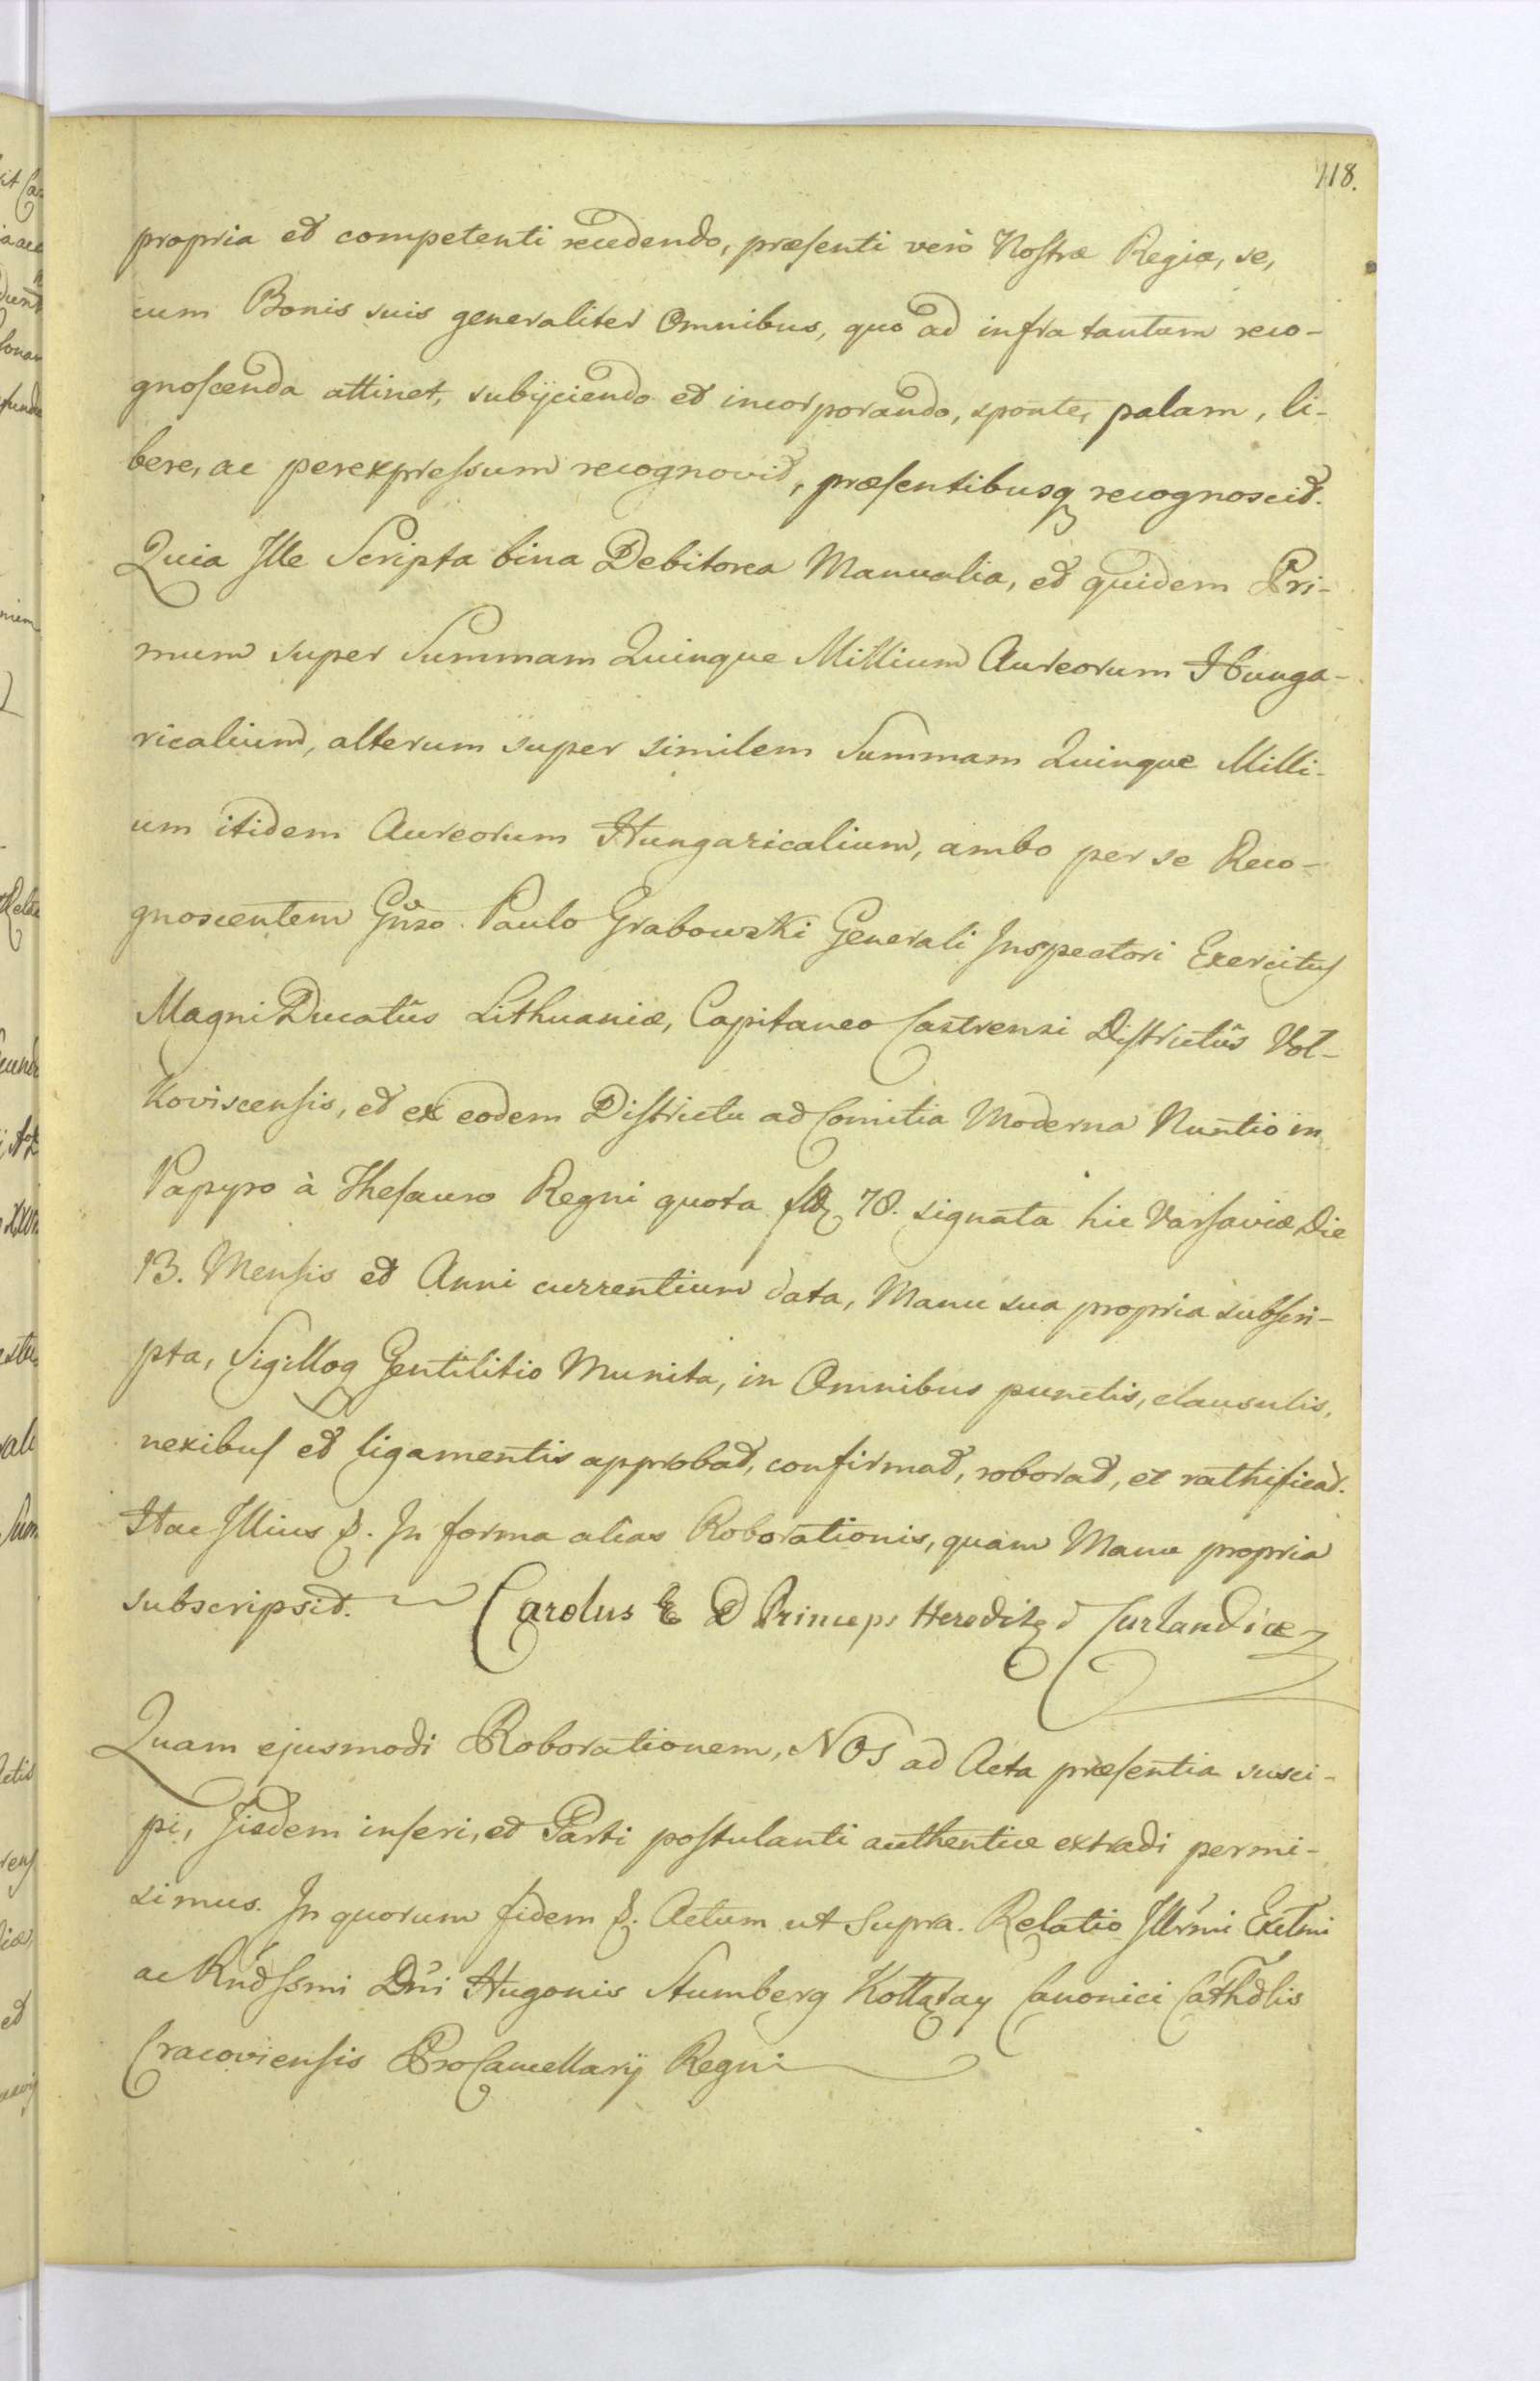 118.
propria et competenti recedendo, præsenti verò Nostræ Regiæ, se,
cum Bonis suis generaliter Omnibus, quo ad infra tantum reco-
gnoscenda attinet, subijciendo et incorporando, sponte, palam, li-
bere, ac perexpressum recognovit, præsentibusq recognoscit.
Quia Ille Scripta bina Debitorea Manualia, et quidem Pri-
mum super Summam Quinque Millium Aureorum Hunga-
ricalium, alterum super similem Summam Quinque Milli-
um itidem Aureorum Hungaricalium, ambo per se Reco-
gnoscentem Gñso. Paulo Grabowski Generali Inspectori Exercitus
Magni Ducatûs Lithuaniæ, Capitaneo Castrensi Districtûs Vol-
koviscensis, et ex eodem Districtu ad Comitia Moderna Nuntio in
Papyro à Thesauro Regni quota 78. signata hic Varsaviæ Die
13. Mensis et Anni currentium data, Manu sua propria subscri-
pta, Sigilloq Gentilitio Munita, in Omnibus punctis, clausulis,
nexibus et ligamentis approbat, confirmat, roborat, et rathificat.
Hac Illius In forma alias Roborationis, quam Manu propria
subscripsit. Carolus E D Princeps Heredit d Curlandiæ
Quam ejusmodi Roborationem, NOS ad Acta præsentia susci-
pi, Iisdem inseri, et Parti postulanti authentice extradi permi-
simus. In quorum fidem Actum ut Supra. Relatio Illrmi Exclmi
ac Rndssmi Dni Hugonis Stumberg Kołłątay Canonici Cathdlis
Cracoviensis ProCancellarij Regni